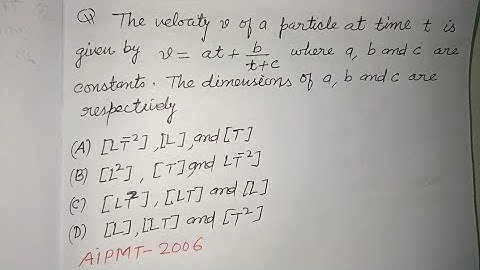 Q) The velocity v of a particle at time t is
given by v = at + b/(t+c) where a, b and c are
constants. The dimensions of a, b and c are
respectively
(A) [LT⁻²], [L], and [T]
(B) [L²], [T] and LT⁻²]
(C) [LT²], [LT] and [L]
(D) [L], [LT] and [T²]
AIPMT-2006